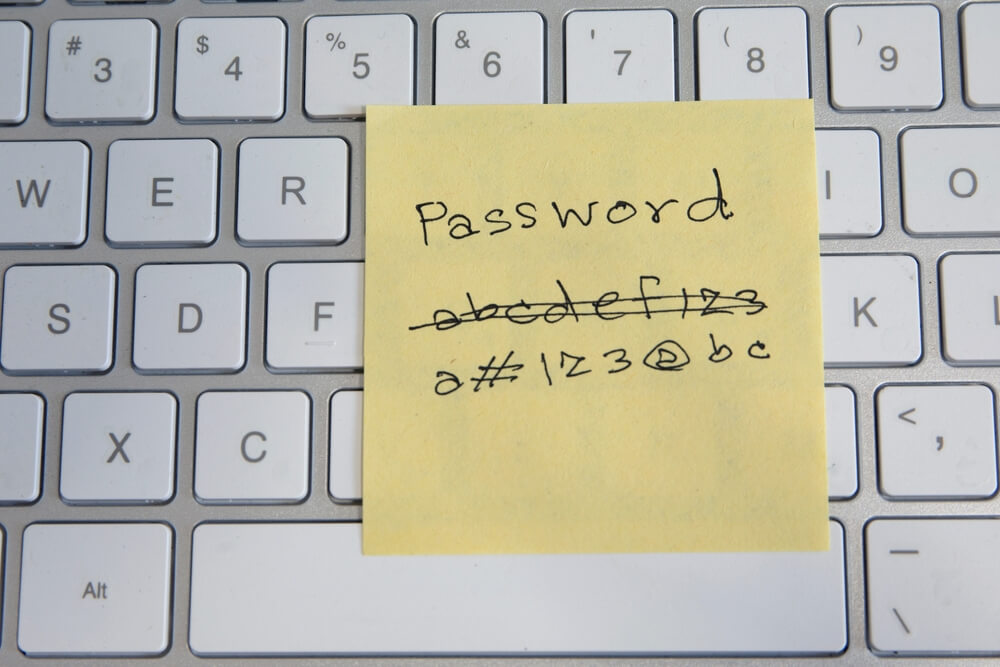 # 3 $ 4 % 5 & 6 ' 7 ( 8 ) 9
W E R I O
Password
abcdef123
a#123@bc
S D F K L
X C < ,
Alt — \